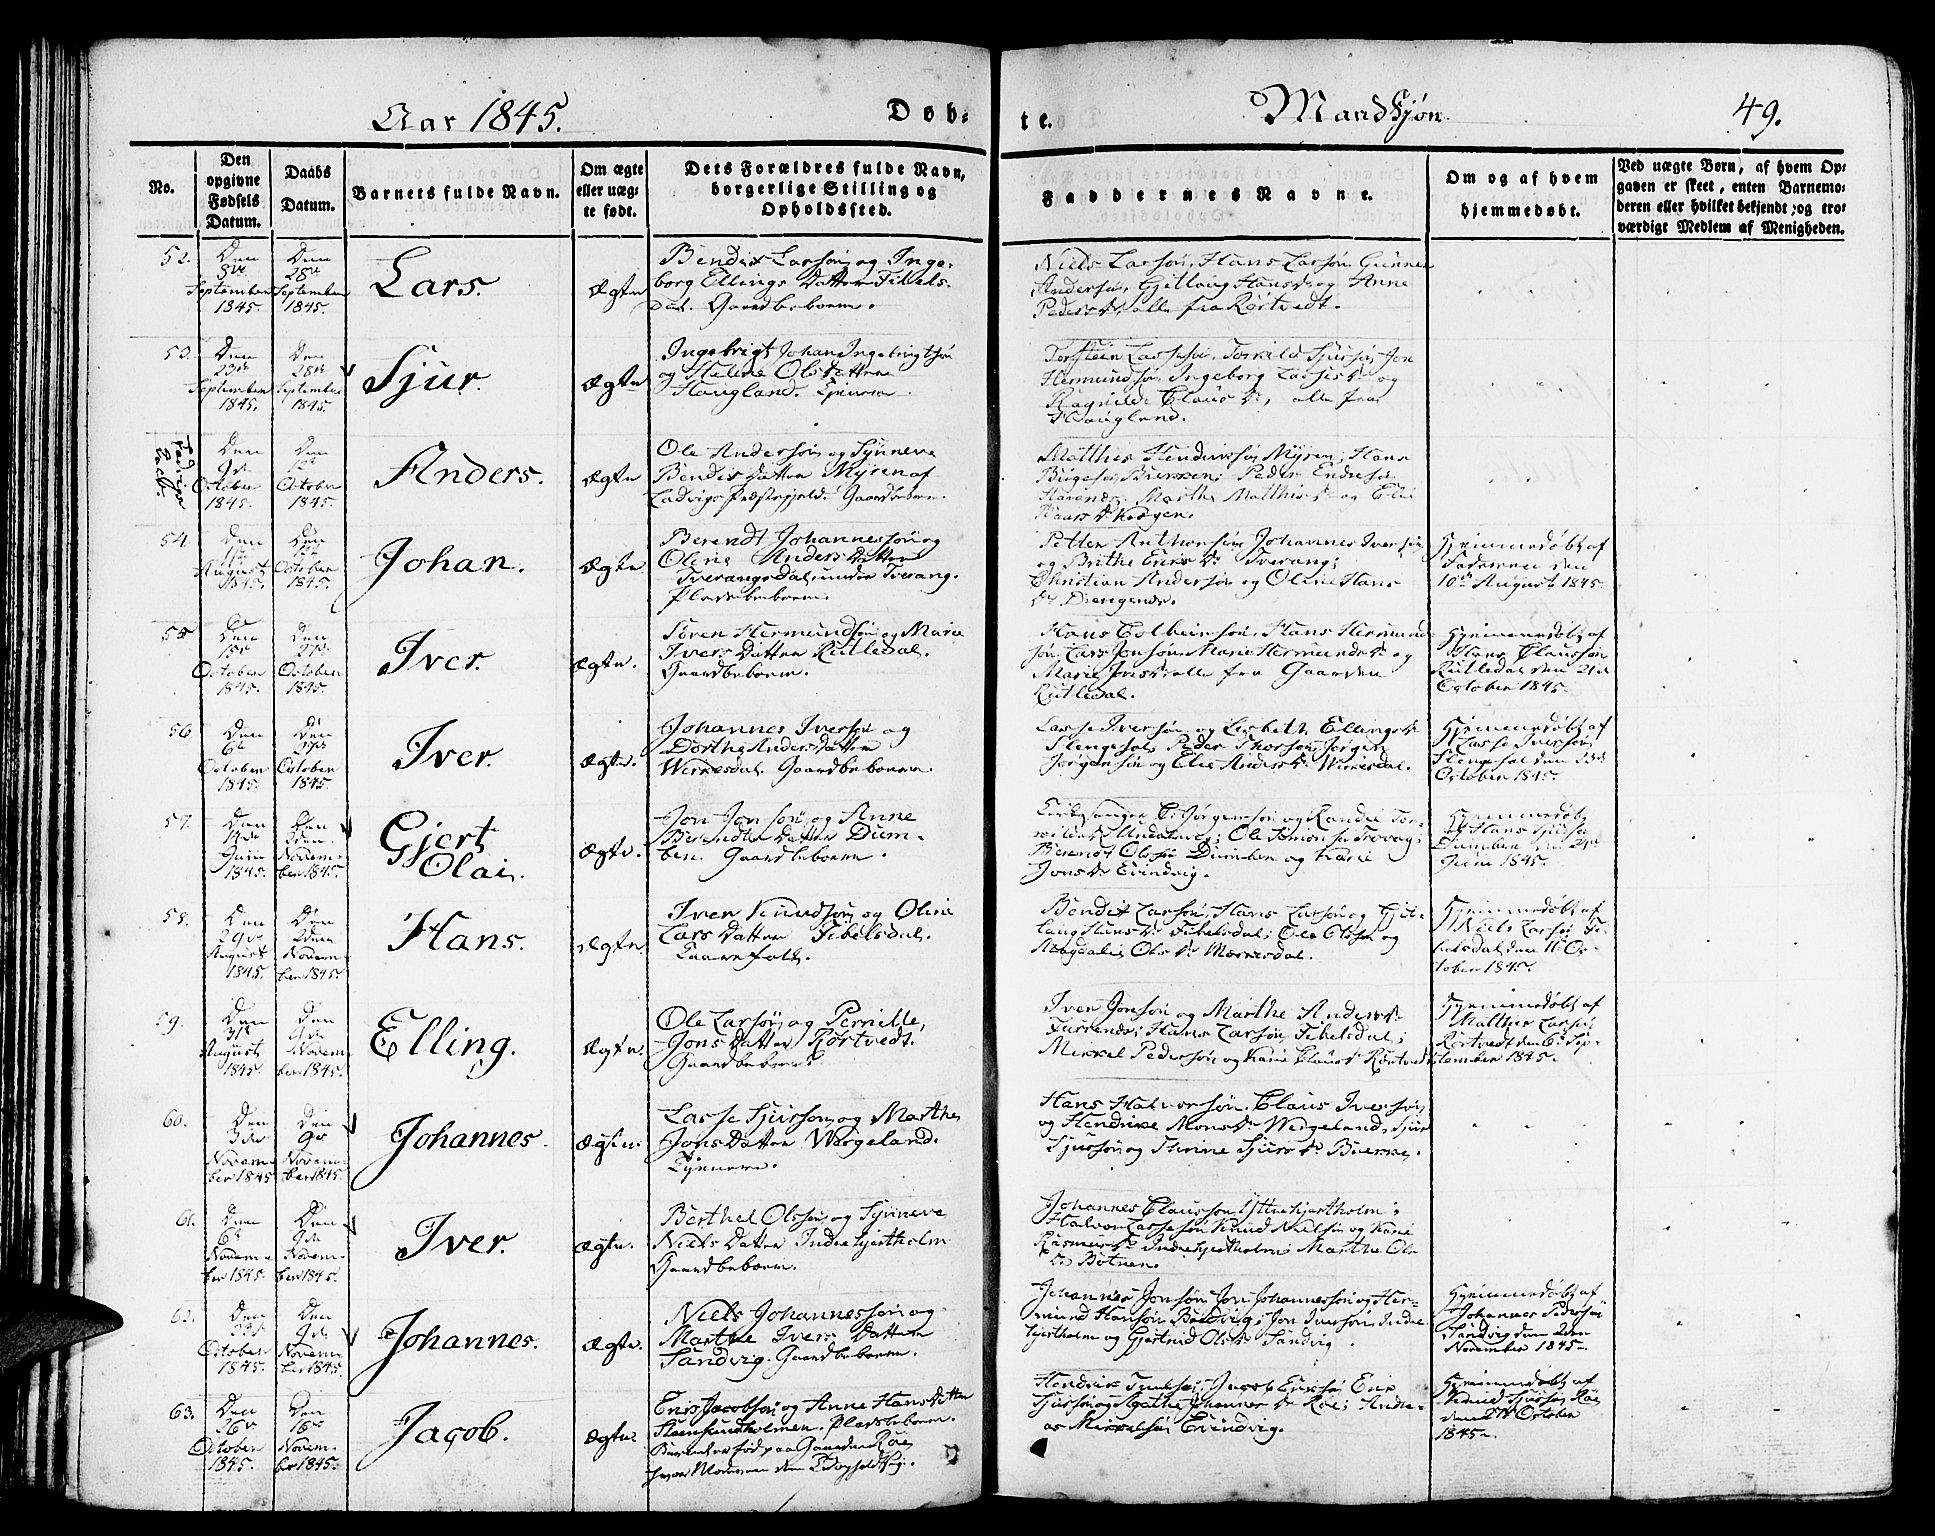 Aar 1845.
Døb-
te.
Mandkjøn.
49.
No.
Den
opgivne
Fødsels
Datum.
Daabs
Datum.
Barnets fulde Navn.
Om ægte
eller uæg-
te født.
Dets Forældres fulde Navn,
borgerlige Stilling og
Opholdssted.
Faddernes Navne.
Om og af hvem
hjemmedøbt.
Ved uægte Børn, af hvem Op-
gaven er skeet, enten Barnemo-
deren eller hvilket bekjendt og tro-
værdigt Medlem af Menigheden.
52.
Den
8de
September
1845.
Den
28de
September
1845.
Lars.
Ægte
Bendix Larsøn og Inge-
borg Ellings Datter Tibels-
dal. Gaardbeboere.
Niels Larsøn, Hans Larsøn, Gunner
Andersøn, Gjetlaug Hansd. og Anne
Pedersd., alle fra Rörtvedt.
53.
Den
September
1845.
Den
28de
September
1845.
Sjur.
Ægte
Ingebrigt Johan Ingebrigtsøn
og Helene Ols Datter
Haugland.
Torstein Lassesøn, Torkild Sjursøn, Jon
Hermundsøn, Ingeborg Lassesd. og
Ragnilde Clausd., alle fra
Haugland.
Den
9de
October
1845.
Den
12te
October
1845.
Anders.
Ægte
Ole Andersøn og Synneve
Bendix Datter Myren af
Ladvigs Præstegjeld. Gaardbeboere.
Matthis Hendriksøn Myren, Hans
Peder Endresøn
Marthe Matthisd. og Eli
54.
Den
August
1845.
Den
12te
October
1845.
Johan.
Ægte
Berendt Johannessøn og
Oline Anders Datter
Tverangsdal, under Tverang.
Pladsbeboere.
Petter Anthonsøn, Johannes Iversøn
og Brithe Eriksd. Tverang;
Christian Andersøn og Oline Hans
d. Diengenes.
Hjemmedøbt af
Faderen den
10de August 1845.
55
Den
October
1845.
Den
October
1845
Iver.
Ægte.
Søren Hermundsøn og Marie
Ivers Datter Rutledal.
Gaardbeboere.
Hans Colbeinsøn, Hans Hermund-
søn, Lars Jonsøn, Marie Hermundsd. og
Marie Jonsd. alle fra Gaarden
Rutledal.
Hjemmedøbt af
Hans Claussøn
Rutledal den 21de
October 1845.
56
Den
6te
October
1845.
Den
October
1845.
Iver.
Ægte.
Johannes Iversøn og
Dorthe Anders Datter
Wernesdal. Gaardbeboere.
Lasse Iversøn og Lisbeth Ellingsd.
Stengesal, Peder Thorsøn, Jørgen
Jørgensøn og Elie Andersd. Wernesdal.
Hjemmedøbt af
Lasse Iversøn
Stengesal den 23de
October 1845.
57.
Den
Juni
1845.
Den
2den
Novem-
ber 1845.
Gjert
Olai.
Ægte.
Jon Jonsøn og Anne
Berendts Datter Dum-
ben. Gaardbeboere.
Kirkesanger C. Jørgensøn og Randi
Berendt Olssøn Dumben og Kari
Jonsd. Evindvig.
Hjemmedøbt
af Hans
Dumben den
Juni 1845.
58.
Den
29de
August
1845.
Den
2den
Novem-
ber 1845.
Hans.
Ægte.
Iver Knudsøn og Oline
Lars Datter Tibelsdal.
Kaarefolk.
Bendix Larsøn, Hans Larsøn og Gjet-
laug Hansd. Tibelsdal; Ole Olssøn og
Magdali Olsd.
Hjemmedøbt af
Niels Larsøn Ti-
belsdal den Oc-
tober 1845.
59.
Den
31te
August
1845.
Den
9de
Novem-
ber 1845.
Elling.
Ægte.
Ole Larsøn og Pernille
Jons Datter Rörtvedt.
Gaardbeboere.
Iver Jonsøn og Marthe Andersd.
Hans Larsøn Tibelsdal;
Mikkel Pedersøn og Kari Clausd. Rörtvedt
Hjemmedøbt af
Matthis Larsøn
Rörtvedt den 6te Sep-
tember 1845.
60.
Den
3die
Novem-
ber 1845
Den
9de
Novem-
ber 1845
Johannes.
Ægte.
Lasse Sjursøn og Marthe
Jons Datter Wergeland.
Hans Halvorsøn, Claus Iversøn
og Hendrike Monsd. Wergeland, Sjur
Sjursøn og Sjursd.
61.
Den
6te
Novem-
ber 1845.
Den
9de
Novem-
ber 1845.
Iver.
Ægte.
Berthel Olssøn og Synneve
Niels Datter Indre Hjertholm
Gaardbeboere.
Johannes Claussøn Yttre Hjertholm;
Halvor Lassesøn, Knud Nielsøn og Kari
Rasmusd. Indre Hjertholm; Marthe Ols
d. Botnen.
62.
Den
October
1845.
Den
9de
Novem-
ber 1845.
Johannes.
Ægte.
Niels Johannessøn og
Marthe Ivers Datter
Sandvig. Gaardbeboere.
Johannes Jonsøn, Jon Johannessøn og Her-
mund Hansøn Jon Iversøn Indre
Hjertholm og Gjertrud Olsd. Sandvig.
Hjemmedøbt af
Johannes Pedersøn
Sandvig den 2den
November 1845.
63.
Den
26de
October
1845.
Den
16de
Novem-
ber 1845.
Jacob.
Ægte.
Erik Jacobsøn og Anne Hans Datter
Steensundholmen. Pladsbeboere.
Barnet er født paa Gaarden Röe,
hvor Moderen
Hendrik Jacob Eriksøn, Erik
Sjursøn og Agathe Johannesd. Röe; Andre-
as Mikkelsøn Evindvig.
Hjemmedøbt af
Knud Sjursøn Röe
den 27de October
1845.